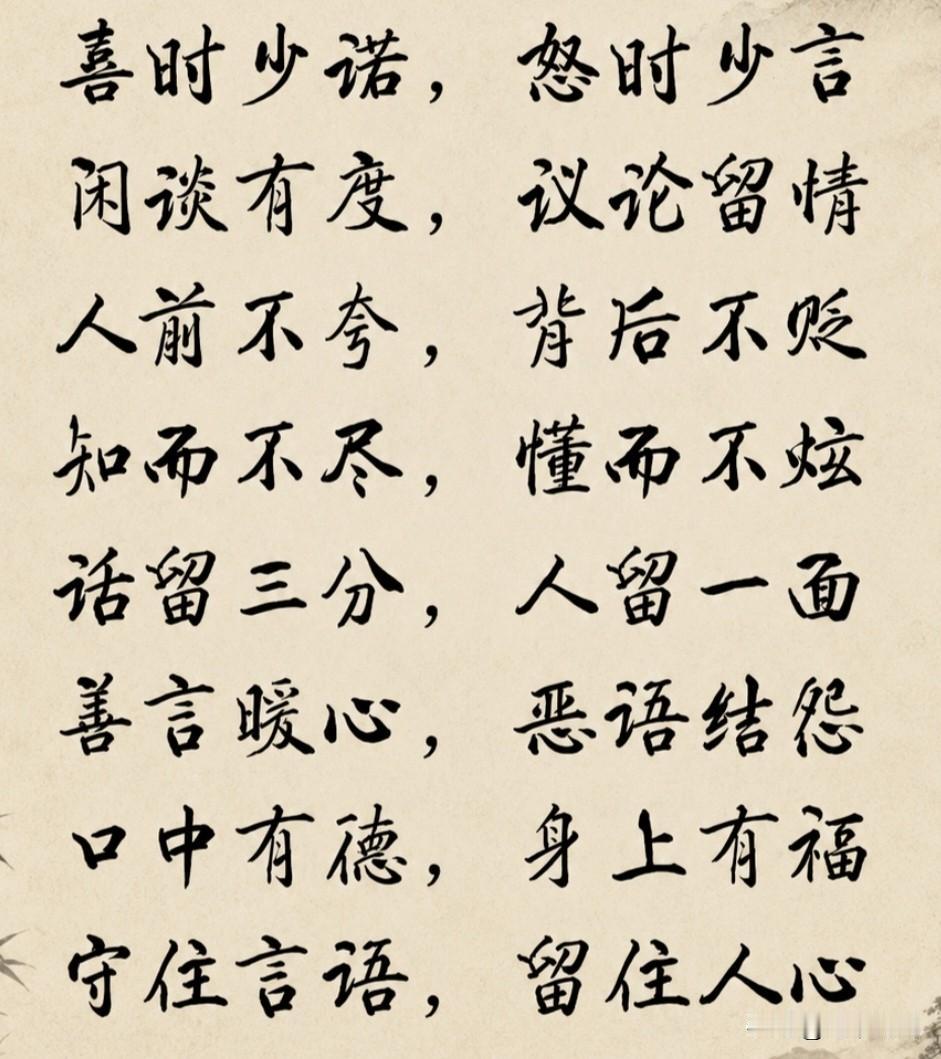 喜时少诺，怒时少言
闲谈有度，议论留情
人前不夸，背后不贬
知而不尽，懂而不炫
话留三分，人留一面
善言暖心，恶语结怨
口中有德，身上有福
守住言语，留住人心